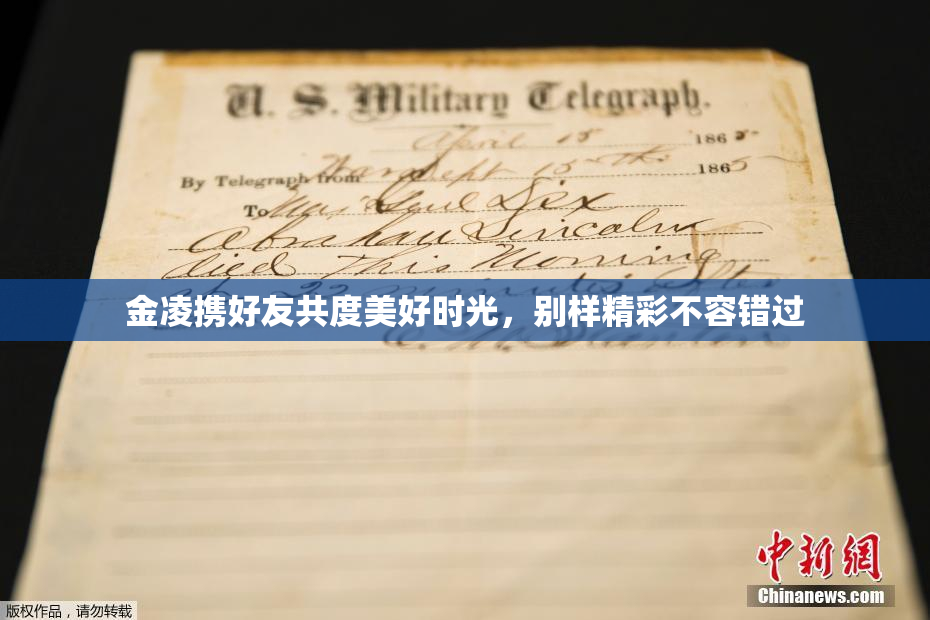 U. S. Military Telegraph.
April 15 1865
By Telegraph from War Dept 15th 1865
To Maj Genl Dix
Abraham Lincoln
died This Morning
at 22 minutes after
金凌携好友共度美好时光，别样精彩不容错过
E. M. Stanton
中新網
Chinanews.com
版权作品，请勿转载